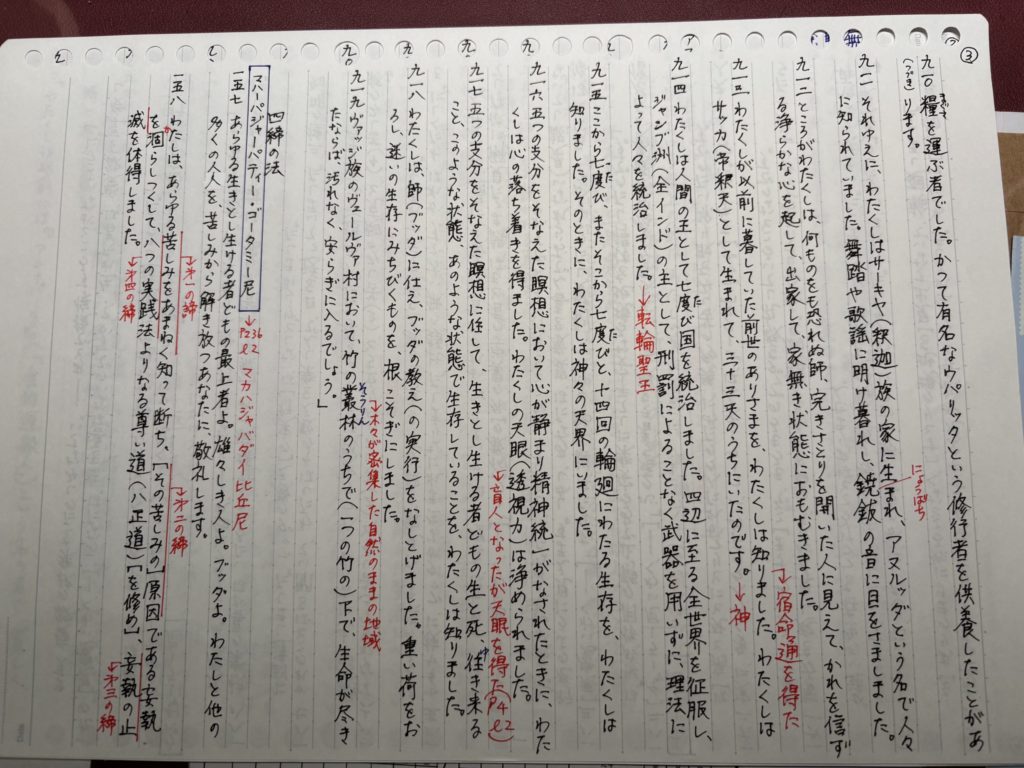 ③
九一〇 糧を運ぶ者でした。かつて有名なウパリッタという修行者を供養したことがあ
(つづき) ります。
九一一 それゆえに、わたくしはサーキヤ(釈迦)族の家に生まれ、アヌルッダという名で人々
に知られていました。舞踏や歌謡に明け暮れし、鐃鈸の音に目をさましました。
にょうばち
九一二 ところがわたくしは、何ものをも恐れぬ師、完きさとりを開いた人に見えて、かれを信ず
る浄らかな心を起して、出家して、家無き状態におもむきました。
九一三 わたくしが以前に暮していた前世のありさまを、わたくしは知りました。わたくしは
→宿命通を得た
サッカ(帝釈天)として生まれて、三十三天のうちにいたのです。→神
九一四 わたくしは人間の王として七度び国を統治しました。四辺に至る全世界を征服し、
ジャンブ洲(全インド)の主として、刑罰によることなく武器を用いずに、理法に
よって人々を統治しました。→転輪聖王
九一五 ここから七度び、またそこから七度びと、十四回の輪廻にわたる生存を、わたくしは
知りました。そのときに、わたくしは神々の天界にいました。
九一六 五つの支分をそなえた瞑想において心が静まり精神統一がなされたときに、わた
くしは心の落ち着きを得ました。わたくしの天眼(透視力)は浄められました。
→盲人となったが天眼を得た(P4 ℓ2)
九一七 五つの支分をそなえた瞑想に住して、生きとし生ける者どもの生と死、往き来る
こと、このような状態 あのような状態で生存していることを、わたくしは知りました。
九一八 わたくしは、師(ブッダ)に仕え、ブッダの教え(の実行)をなしとげました。重い荷をお
ろし、迷いの生存にみちびくものを、根こそぎにしました。
→木々が密集した自然のままの地域
九一九 ヴァッジ族のヴェールヴァ村において、竹の叢林のうちで(一つの竹の)下で、生命が尽き
たならば、汚れなく、安らぎに入るでしょう。」
四締の法
マハーパジャーパティー・ゴータミー尼 →P236 ℓ2 マカハジャバダイ比丘尼
一五七 あらゆる生きとし生ける者どもの最上者よ。雄々しき人よ。ブッダよ。わたしと他の
多くの人人を苦しみから解き放つあなたに、敬礼します。
→第一の諦
→第二の締
一五八 わたしは、あらゆる苦しみをあまねく知って断ち、[その苦しみの]原因である妄執
を涸らしつくして、八つの実践法よりなる尊い道(八正道)[を修め]、妄執の止
→第三の締
滅を体得しました。→第四の締